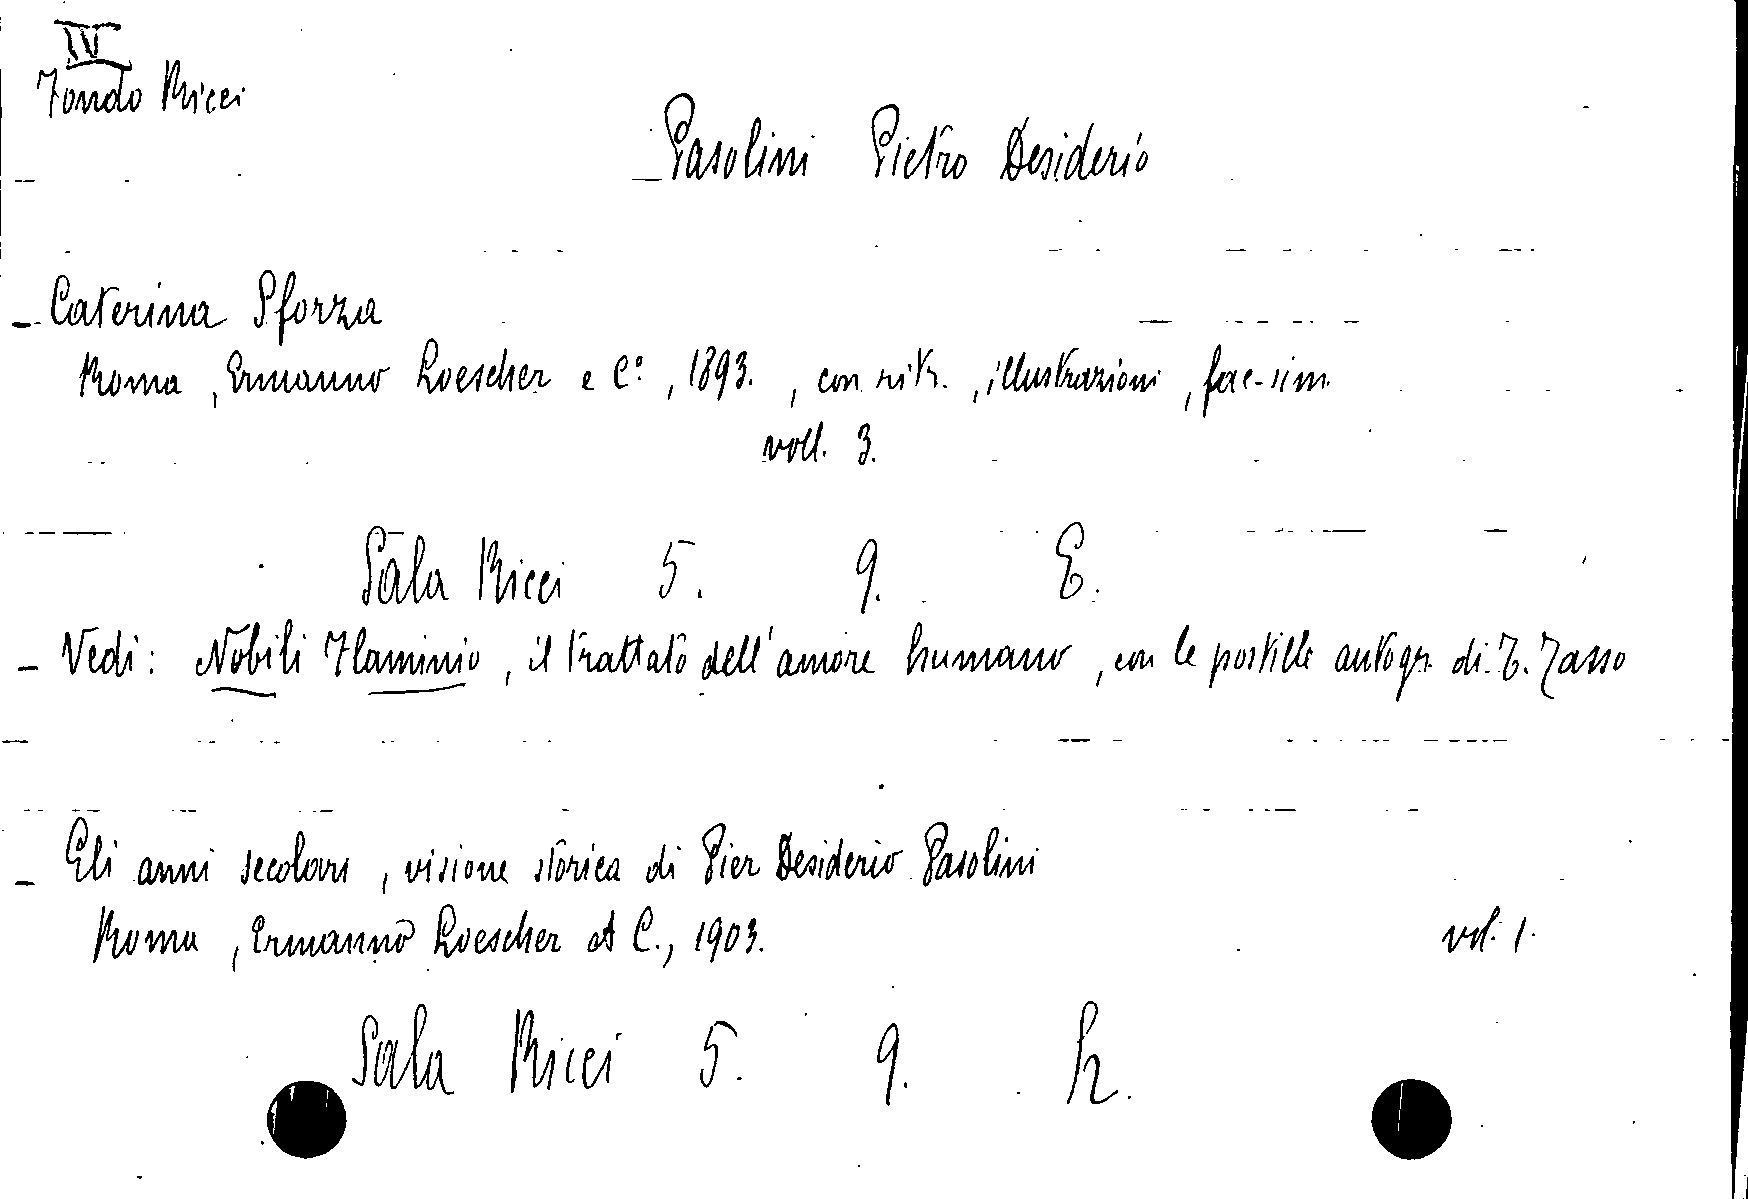 IV
Fondo Ricci
Pasolini Pietro Desiderio
- Caterina Sforza
Roma, Ermanno Loescher e C.°, 1893., con ritr., illustrazioni, fac-sim.
voll. 3.
Sala Ricci 5. 9. E.
- Vedi: Nobili Flaminio, il trattato dell'amore humano, con le postille autogr. di T. Tasso
- Gli anni secolari, visione storica di Pier Desiderio Pasolini
Roma, Ermanno Loescher et C., 1903. vol. 1.
Sala Ricci 5. 9. h.